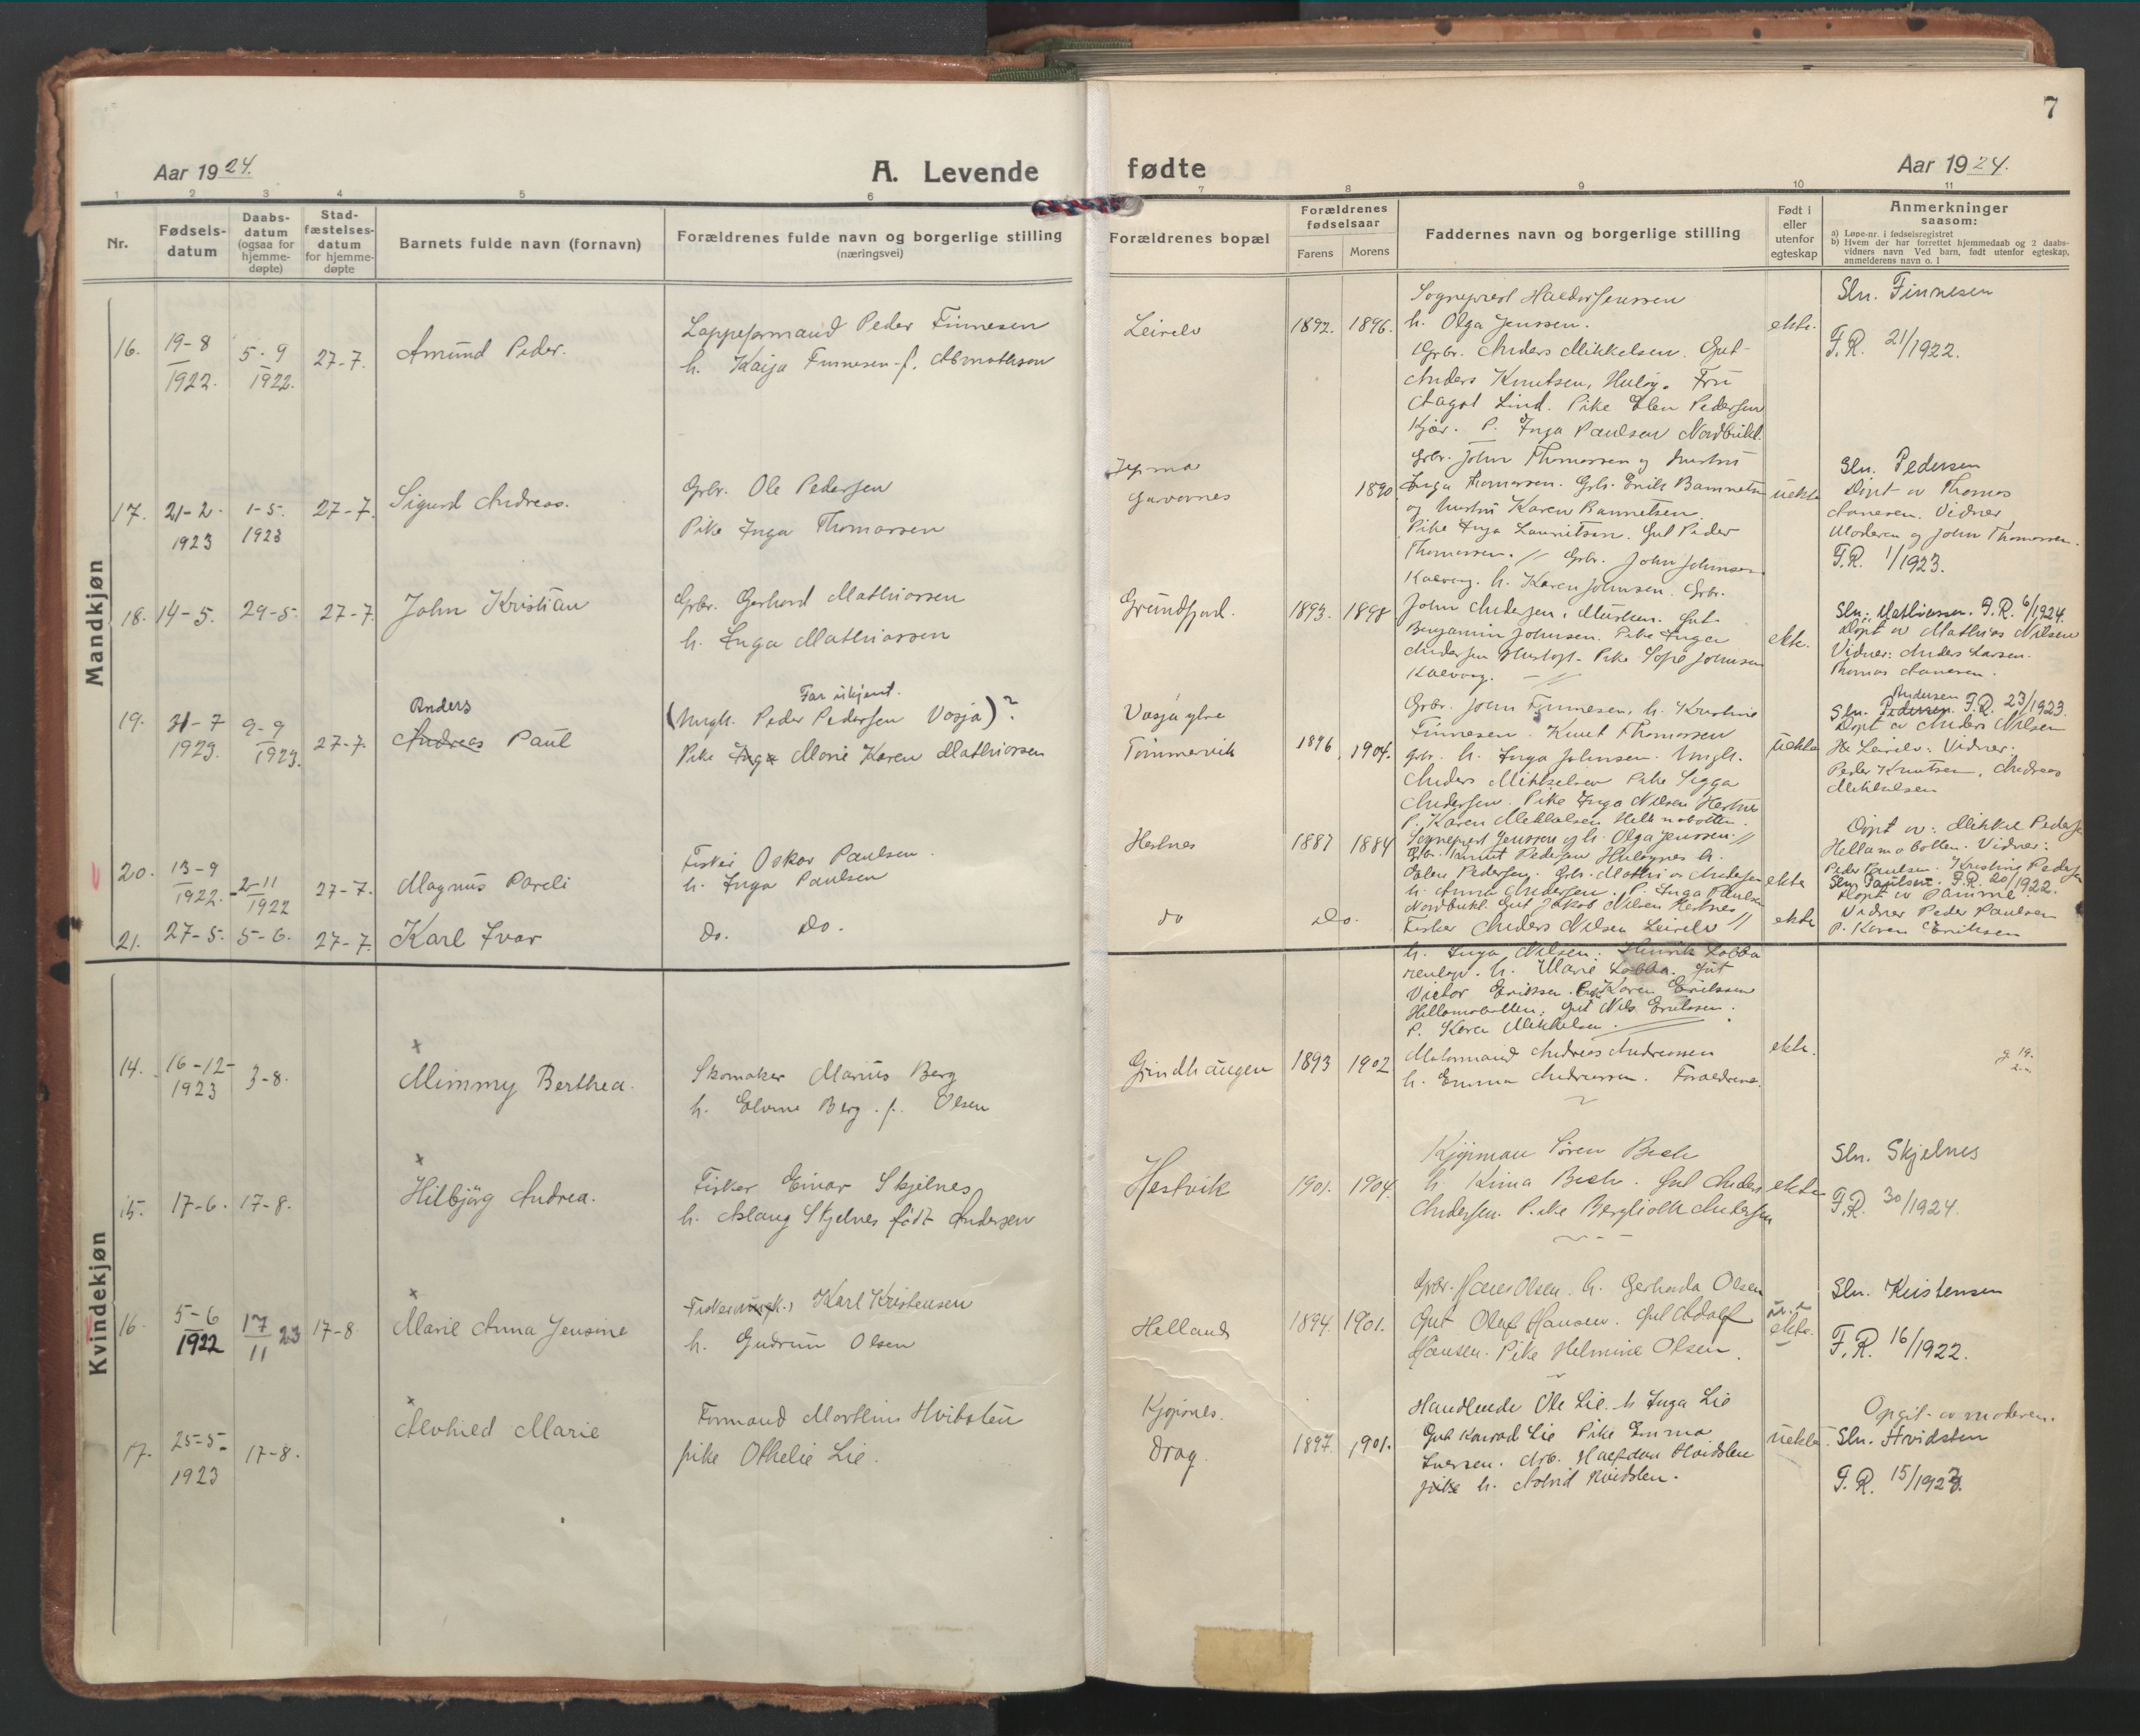 7
Aar 1924.
A. Levende fødte
Aar 1924.
1 2 3 4 5 6 7 8 9 10 11
Nr.
Fødselsdatum
Daabsdatum (ogsaa for hjemmedøpte)
Stadfæstelsesdatum for hjemmedøpte
Barnets fulde navn (fornavn)
Forældrenes fulde navn og borgerlige stilling
(næringsvei)
Forældrenes bopæl
Forældrenes fødselsaar
Farens Morens
Faddernes navn og borgerlige stilling
Født i eller utenfor egteskap
Anmerkninger
saasom:
a) Løpe-nr. i fødselsregistret
b) Hvem der har forrettet hjemmedaab og 2 daabsvidners navn Ved barn, født utenfor egteskap, anmelderens navn o. l
Mandkjøn
16. 19-8 1922. 5-9 1922. 27-7.
Amund Peder.
Peder Finnesen
h. Kaija Finnesen f.
Leirelv
1892. 1896.
Sogneprest Jenssen
h. Olga Jenssen.
Grbr. Anders Mikkelsen. Gut
Anders Knutsen, Fru
Aagot Lind. Pike Elen Pedersen
P. Inga Paulsen
ekte.
Sln. Finnesen
F.R. 21/1922.
17. 21-2- 1923 1-5- 1923 27-7.
Sigurd Andreas.
Grbr. Ole Pedersen
Pike Inga Thomassen
1890
Grbr. John Thomassen og hustru
Inga Thomassen. Grbr. Erik
og hustru Karen
Pike Inga Lauritsen. Gut Peder
Thomassen. // Grbr. John Johnsen
uekte
Sln. Pedersen
Døpt av Thomas
Vidner
Moderen og John Thomassen.
F.R. 1/1923.
18. 14-5. 29-5. 27-7
John Kristian
Grbr. Gerhard Mathiassen
h. Inga Mathiassen
Grundfjord.
1893. 1898
h. Karen Johnsen. Grbr.
John Andersen, Gut
Benjamin Johnsen. Pike Inga
Andersen Pike Sofie Johnsen
ekte.
Sln: Mathiassen. F.R. 6/1924.
Døpt av Mathias Nilsen
Vidner: Anders Larsen.
Thomas
19. 31-7 1923. 9-9 1923. 27-7.
Anders
Andreas Paul
Far ukjent.
(Ungk. Peder Pedersen Vasja)?
Pike Inga Marie Karen Mathiassen
Vasja ytre
Tømmervik
1896 1904.
Grbr. John Finnesen, h. Kristine
Finnesen. Knut Thomassen
grbr. h. Inga Johnsen. Ungk.
Anders Mikkelsen Pike Sigga
Andersen. Pike Inga Nilsen
P. Karen Mikkelsen
uekte
Andersen
Sln. Pedersen. F.R. 23/1923.
Døpt av Anders Nilsen
Leirelv: Vidner:
Peder Knutsen, Andreas
Mikkelsen
20. 13-9 1922. 2-11 1922 27-7.
Magnus Pareli
Fisker Oskar Paulsen.
h. Inga Paulsen
Hestnes
1887 1884
Sogneprest Jenssen og h. Olga Jenssen. //
Grbr. Knut Pedersen h.
Elen Pedersen. Grbr. Mathias Andersen
h. Anna Andersen. P. Inga Paulsen
Gut Jakob Nilsen Hestnes
ekte
Døpt av: Mikkel Pedersen
Vidner:
Peder Paulsen. Kristine Pedersen
Sln. Paulsen. F.R. 20/1922.
21. 27-5. 5-6. 27-7.
Karl Ivar
do. do.
do
do.
Fisker Anders Nilsen Leirelv //
h. Inga Nilsen. Henrik Labba
h. Marie Labba. Gut
Victor Eriksen. Pike Karen Eriksen
Gut Nils Eriksen.
P. Karen Mikkelsen.
ekte
Døpt av samme.
Vidner Peder Paulsen
P. Karen Eriksen
Kvindekjøn
14. 16-12- 1923 3-8.
Mimmy Berthea.
Skomaker Marius Berg
h. Elvine Berg. f. Olsen
Grindhaugen
1893 1902
Andreas Andreassen
h. Emma Andreassen. Forældrene.
ekte.
15. 17-6. 17-8.
Hilbjørg Andrea.
Fisker Einar Skjelnes
h. Aslaug Skjelnes født Andersen
Hestvik
1901. 1904.
Kjøpman Søren Bech
h. Kima Bech. Gut Anders
Andersen. Pike Berglioth Andersen
ekte
Sln. Skjelnes
F.R. 30/1924.
16. 5-6 1922 17/11 23 17-8.
Marie Anna Jensine
Fisker Karl Kristensen
h. Gudrun Olsen
Helland
1894. 1901.
Grbr. Hans Olsen. h. Gerharda Olsen
Gut Olaf Hansen. Gut Adolf
Hansen. Pike Helmine Olsen.
ekte.
Sln. Kristensen
F.R. 16/1922.
17. 25-5- 1923 17-8.
Alvhied Marie
Formand Marthins Hvidsten
pike Othelie Lie.
Kjøpsnes.
Drag.
1897. 1901.
Handlende Ole Lie. h Inga Lie
Gut Konrad Lie Pike Emma
Iversen. Halfdan Hvidsten
pike h. Astrid Hvidsten.
uekte.
Opgit av moderen.
Sln. Hvidsten
F.R. 15/1923.